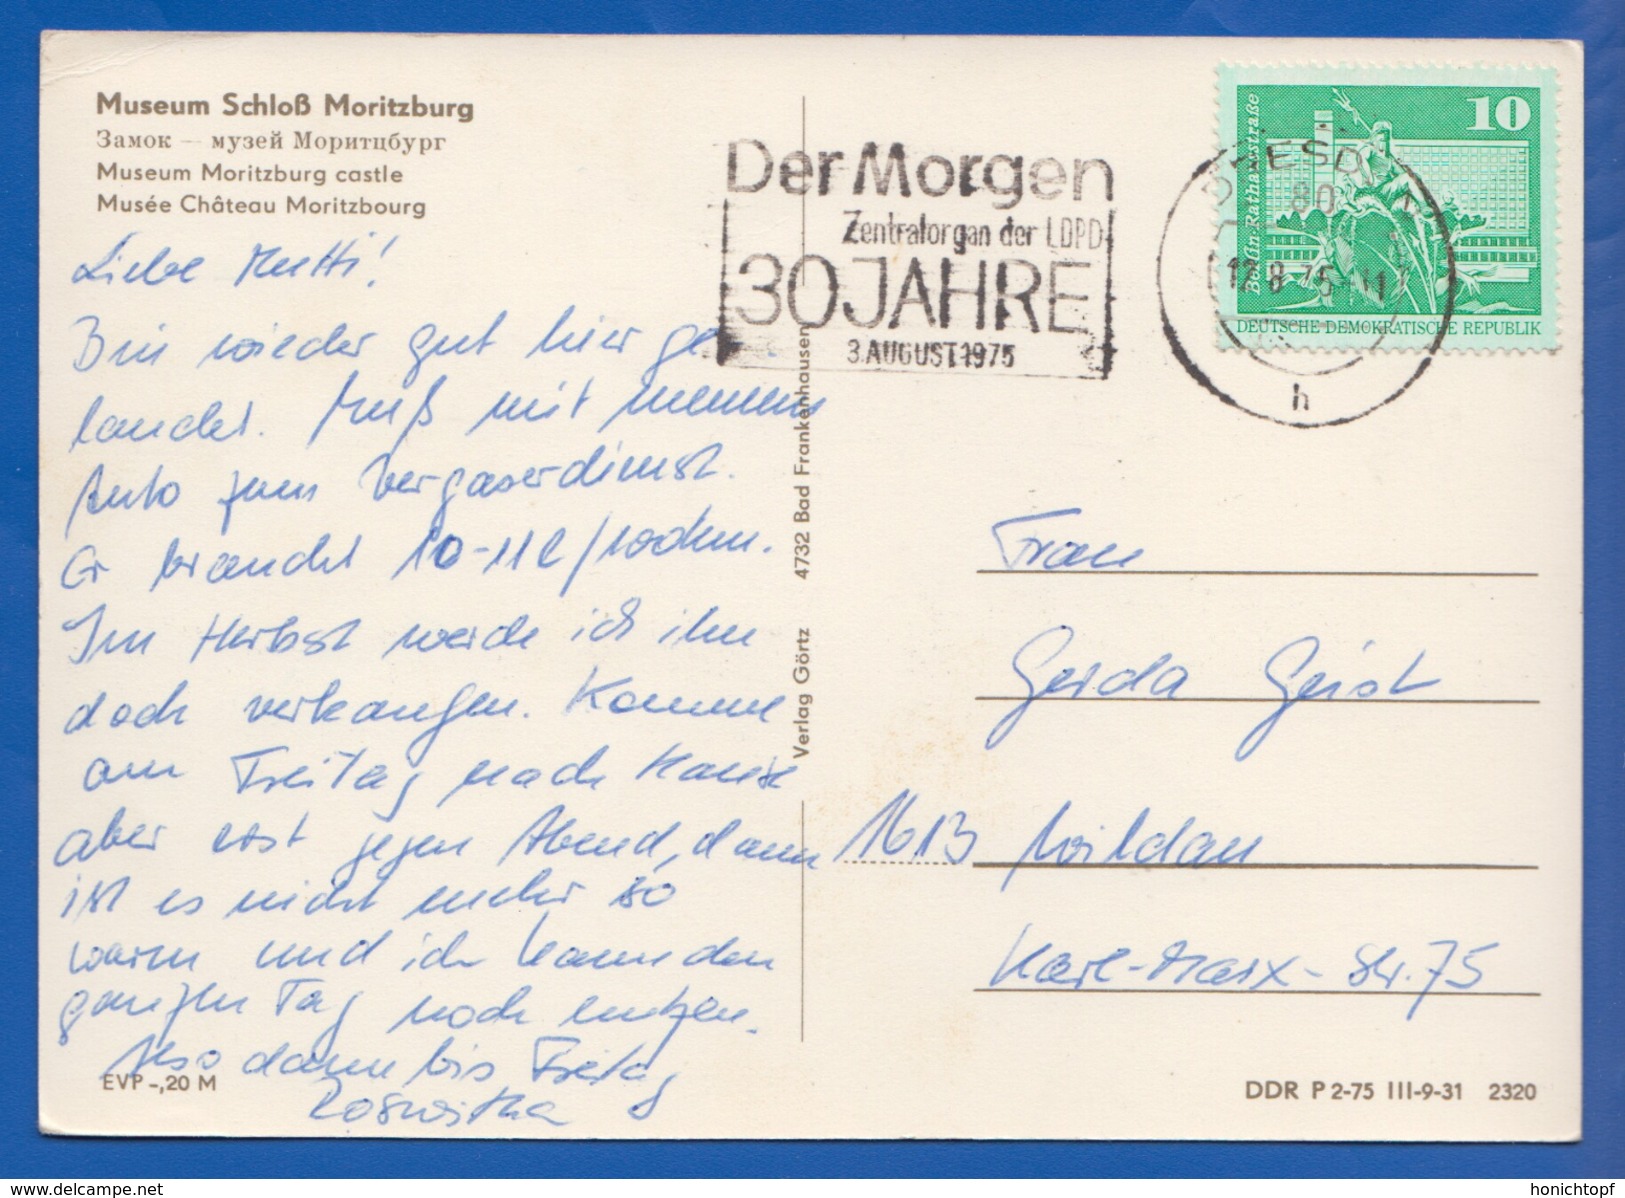 Museum Schloß Moritzburg
Замок — музей Моритцбург
Museum Moritzburg castle
Musée Château Moritzbourg
Liebe Mutti!
Bin wieder gut hier ge-
landet. Muß mit meinem
Auto zum Vergaserdienst.
Er braucht 10-11 l/100 km.
Im Herbst werde ich ihn
doch verkaufen. Komme
am Freitag nach Hause
aber erst gegen Abend, dann
ist es nicht mehr so
warm und ich kann den
ganzen Tag noch nutzen.
Also dann bis Freitag
Roswitha
EVP -,20 M
Verlag Görtz 4732 Bad Frankenhausen
Der Morgen
Zentralorgan der LDPD
30 JAHRE
3. AUGUST 1975
10
Berlin-Rathausstraße
DEUTSCHE DEMOKRATISCHE REPUBLIK
DRESDEN
80
12.8.75-11
h
Frau
Gerda Geist
1613 Wildau
Karl-Marx-Str. 75
DDR P 2-75 III-9-31 2320
www.delcampe.net
honichtopf